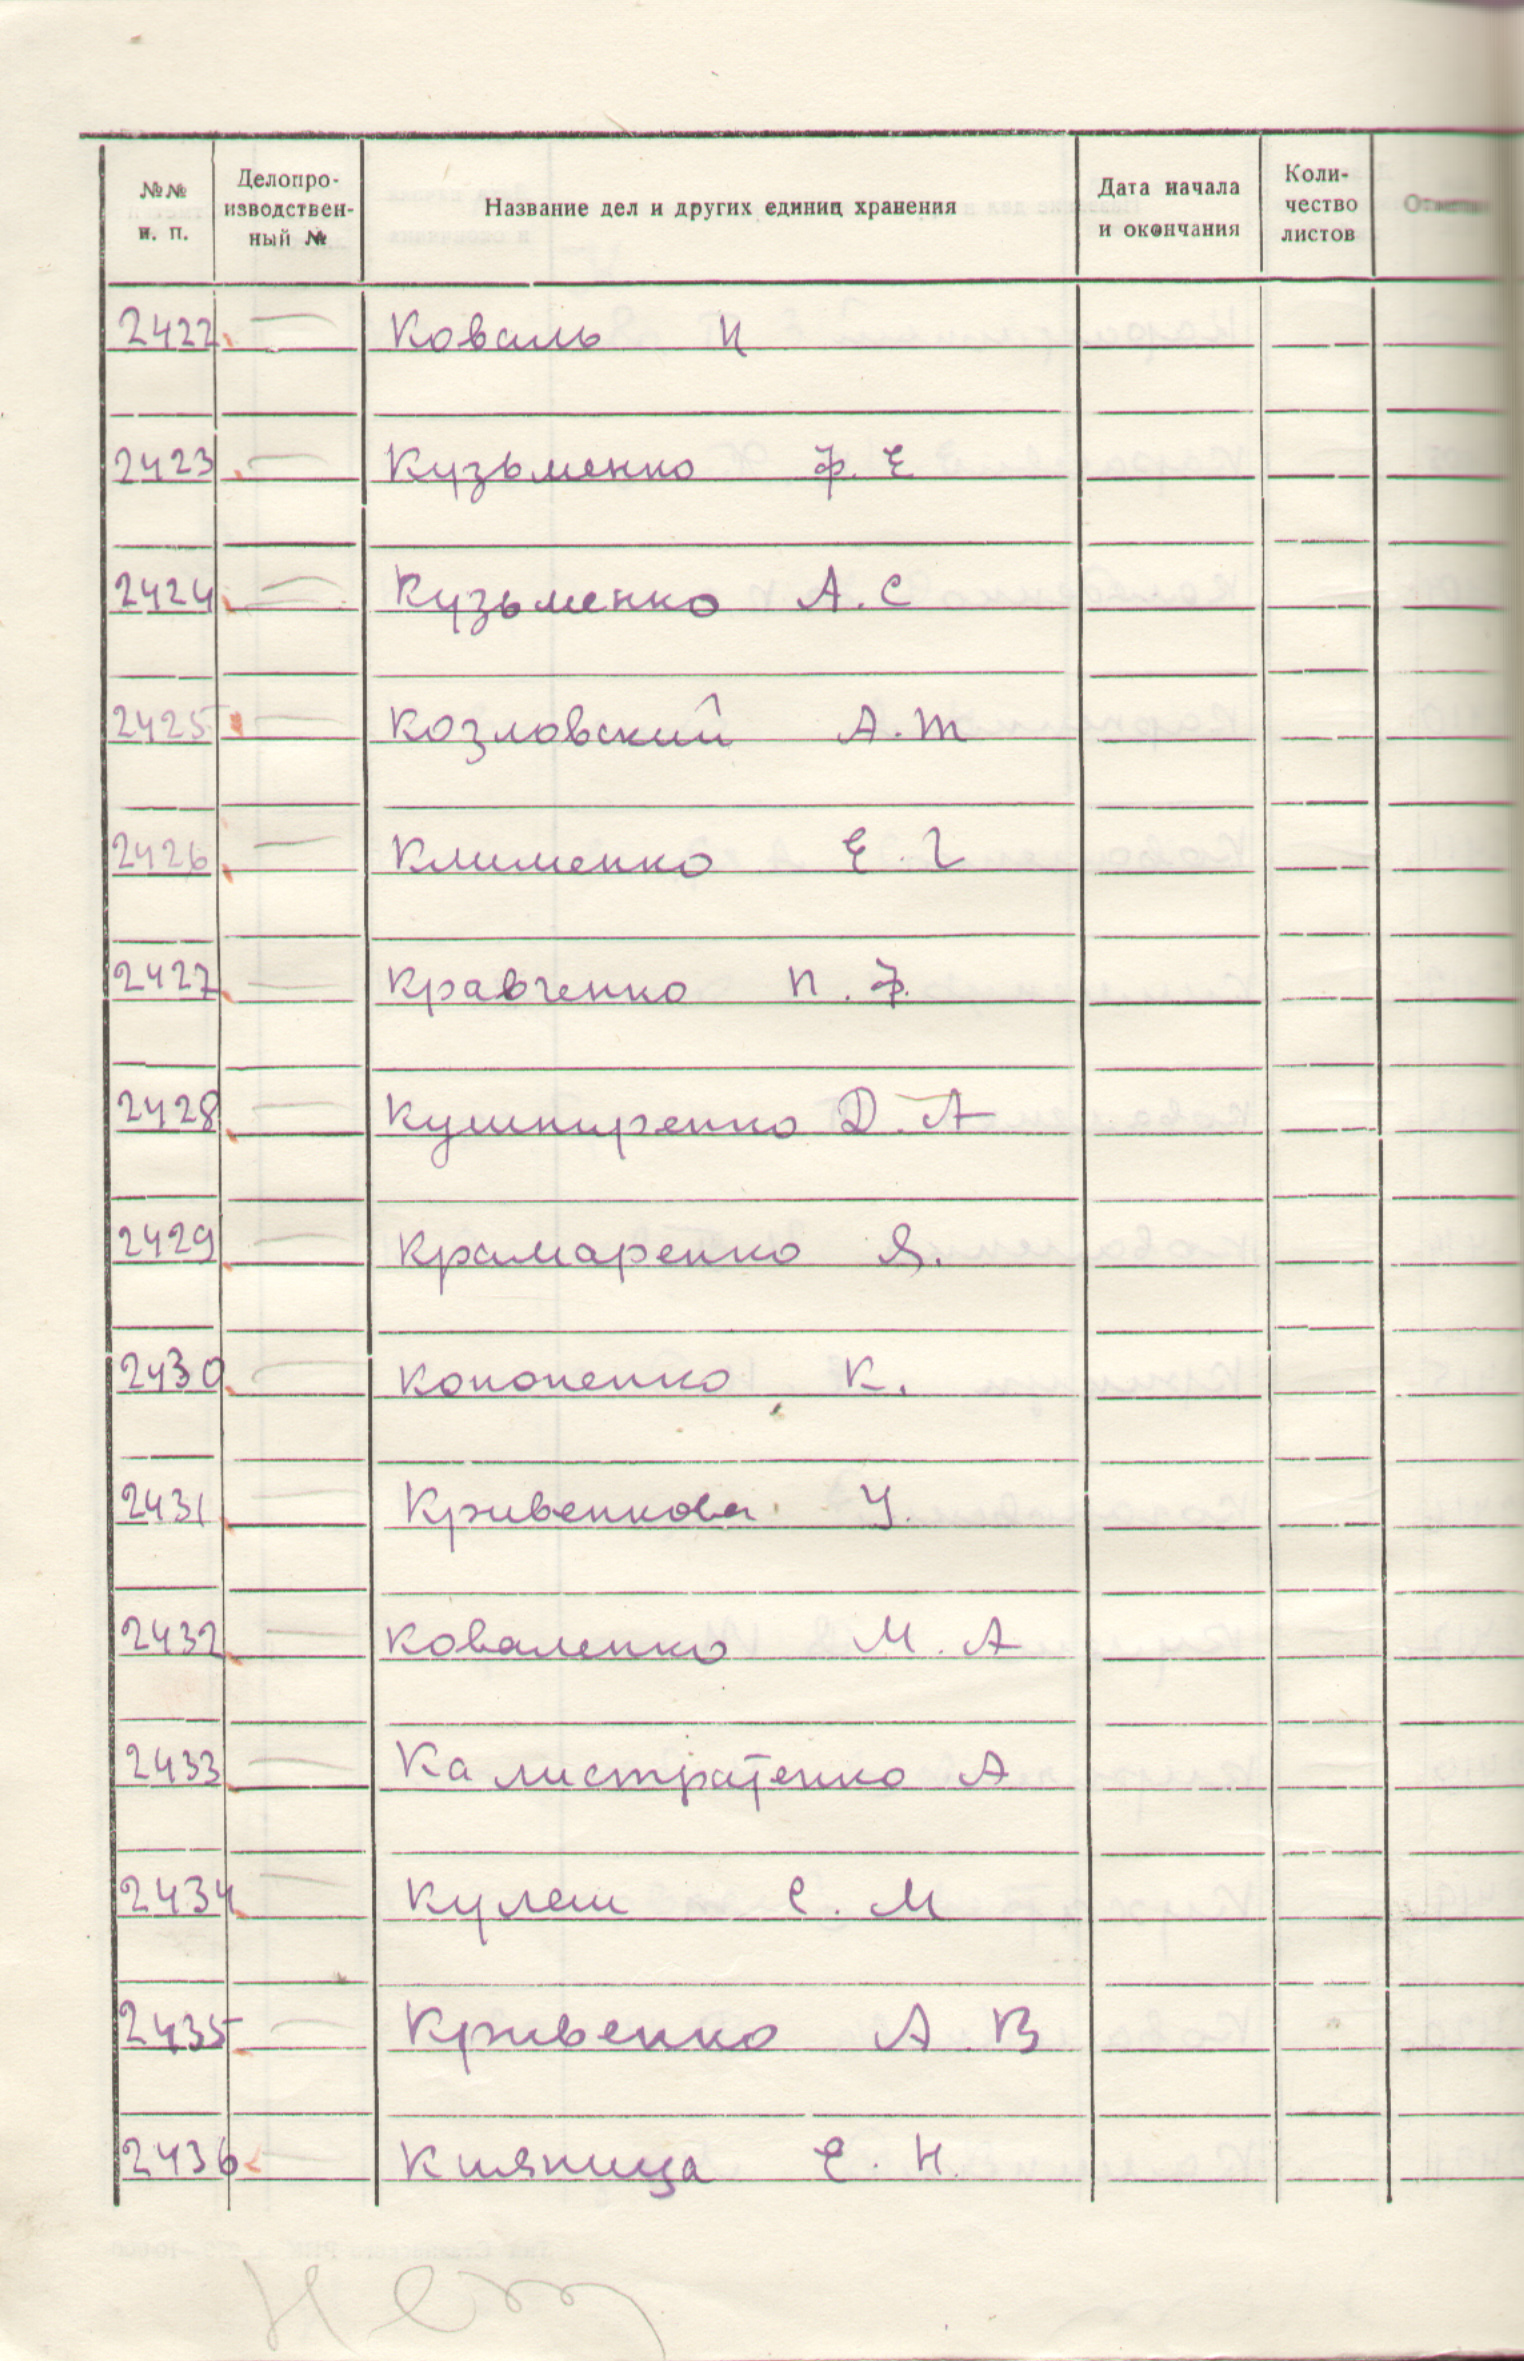 №№ п. п. Делопроизводственный № Название дел и других единиц хранения Дата начала и окончания Количество листов
2422 Коваль И
2423 Кузьменко Ф. Е
2424 Кузьменко А. С
2425 Козловский А. Т
2426 Клименко Е. Г
2427 Кравченко П. Ф.
2428 Кушниренко Д. А
2429 Крамаренко Я.
2430 Кононенко К.
2431 Кривенкова У.
2432 Коваленко М. А
2433 Калистратенко А
2434 Кулеш С. М
2435 Кривенко А. В
2436 Кияница Е. Н.
Нет